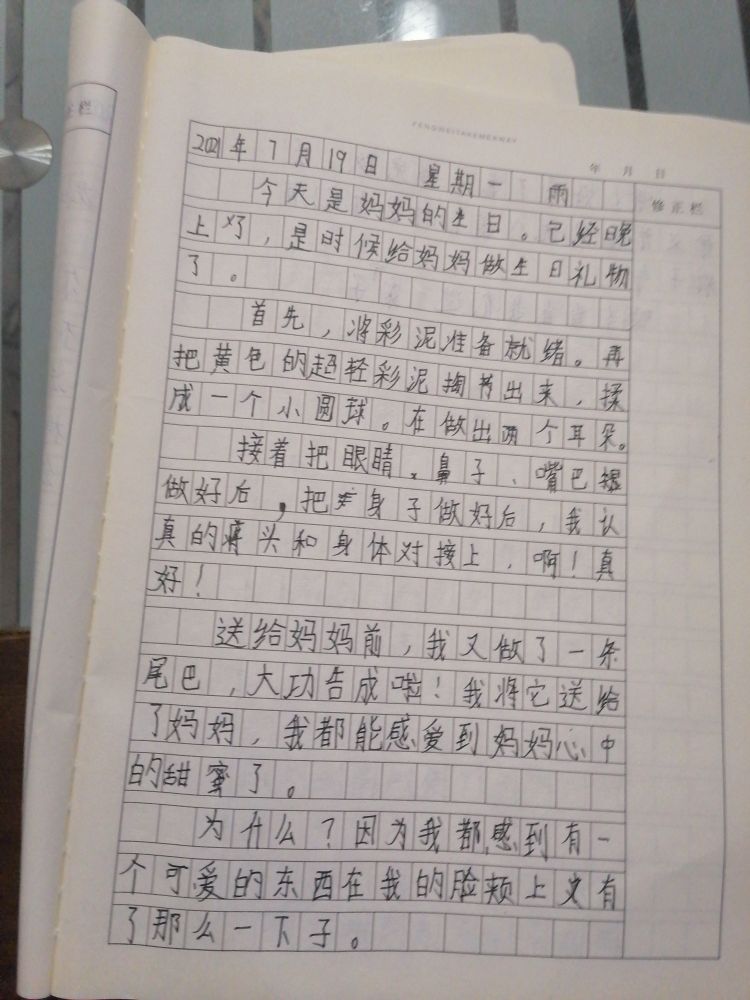 FENGWEITAKEMEAWAY
年 月 日
修正栏
栏
2021年7月19日 星期一 雨
今天是妈妈的生日。已经晚
上了,是时候给妈妈做生日礼物
了。
首先,将彩泥准备就绪。再
把黄色的超轻彩泥掏出来,揉
成一个小圆球。在做出两个耳朵。
接着把眼睛、鼻子、嘴巴
做好后,把身子做好后,我认
真的将头和身体对接上,啊!真
好!
送给妈妈前,我又做了一条
尾巴,大功告成啦!我将它送给
了妈妈,我都能感爱到妈妈心中
的甜蜜了。
为什么?因为我都感到有一
个可爱的东西在我的脸颊上文有
了那么一下子。